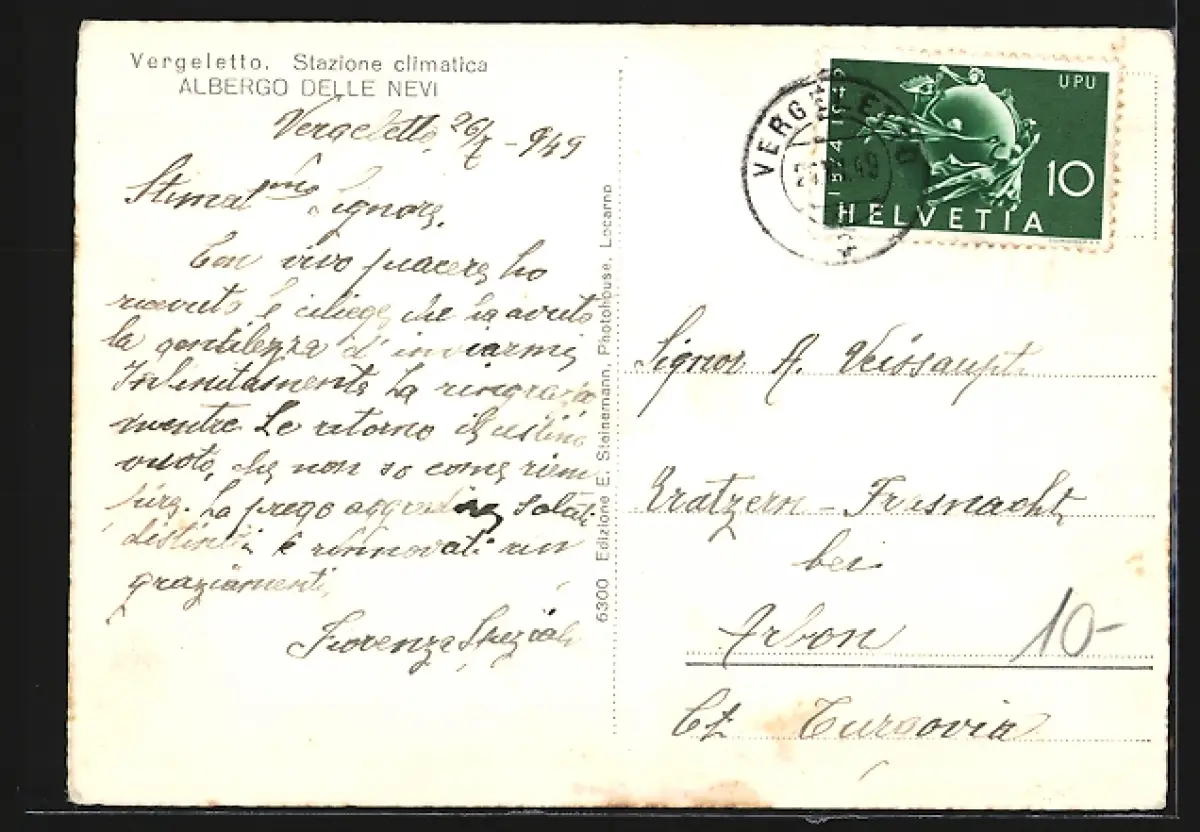 Vergeletto. Stazione climatica
ALBERGO DELLE NEVI
Vergeletto, 26/7 - 949
Stimat.mo Signore,
Con vivo piacere ho
ricevuto le ciliege che la avuto
la gentilezza d'inviarmi,
Infinitamente La ringrazio
mentre Le ritorno il cestino
vuoto, che non so come riem
pire. La prego aggradire saluti
distinti e rinnovati rin
graziamenti,
Fiorenza Speziali
6300 Edizione E. Steinemann, Photohouse, Locarno
VERGELETTO
UPU
10
HELVETIA
Signor A. Veissaupt
Kratzern - Frasnacht
bei
Arbon
10-
Ct. Turgovia